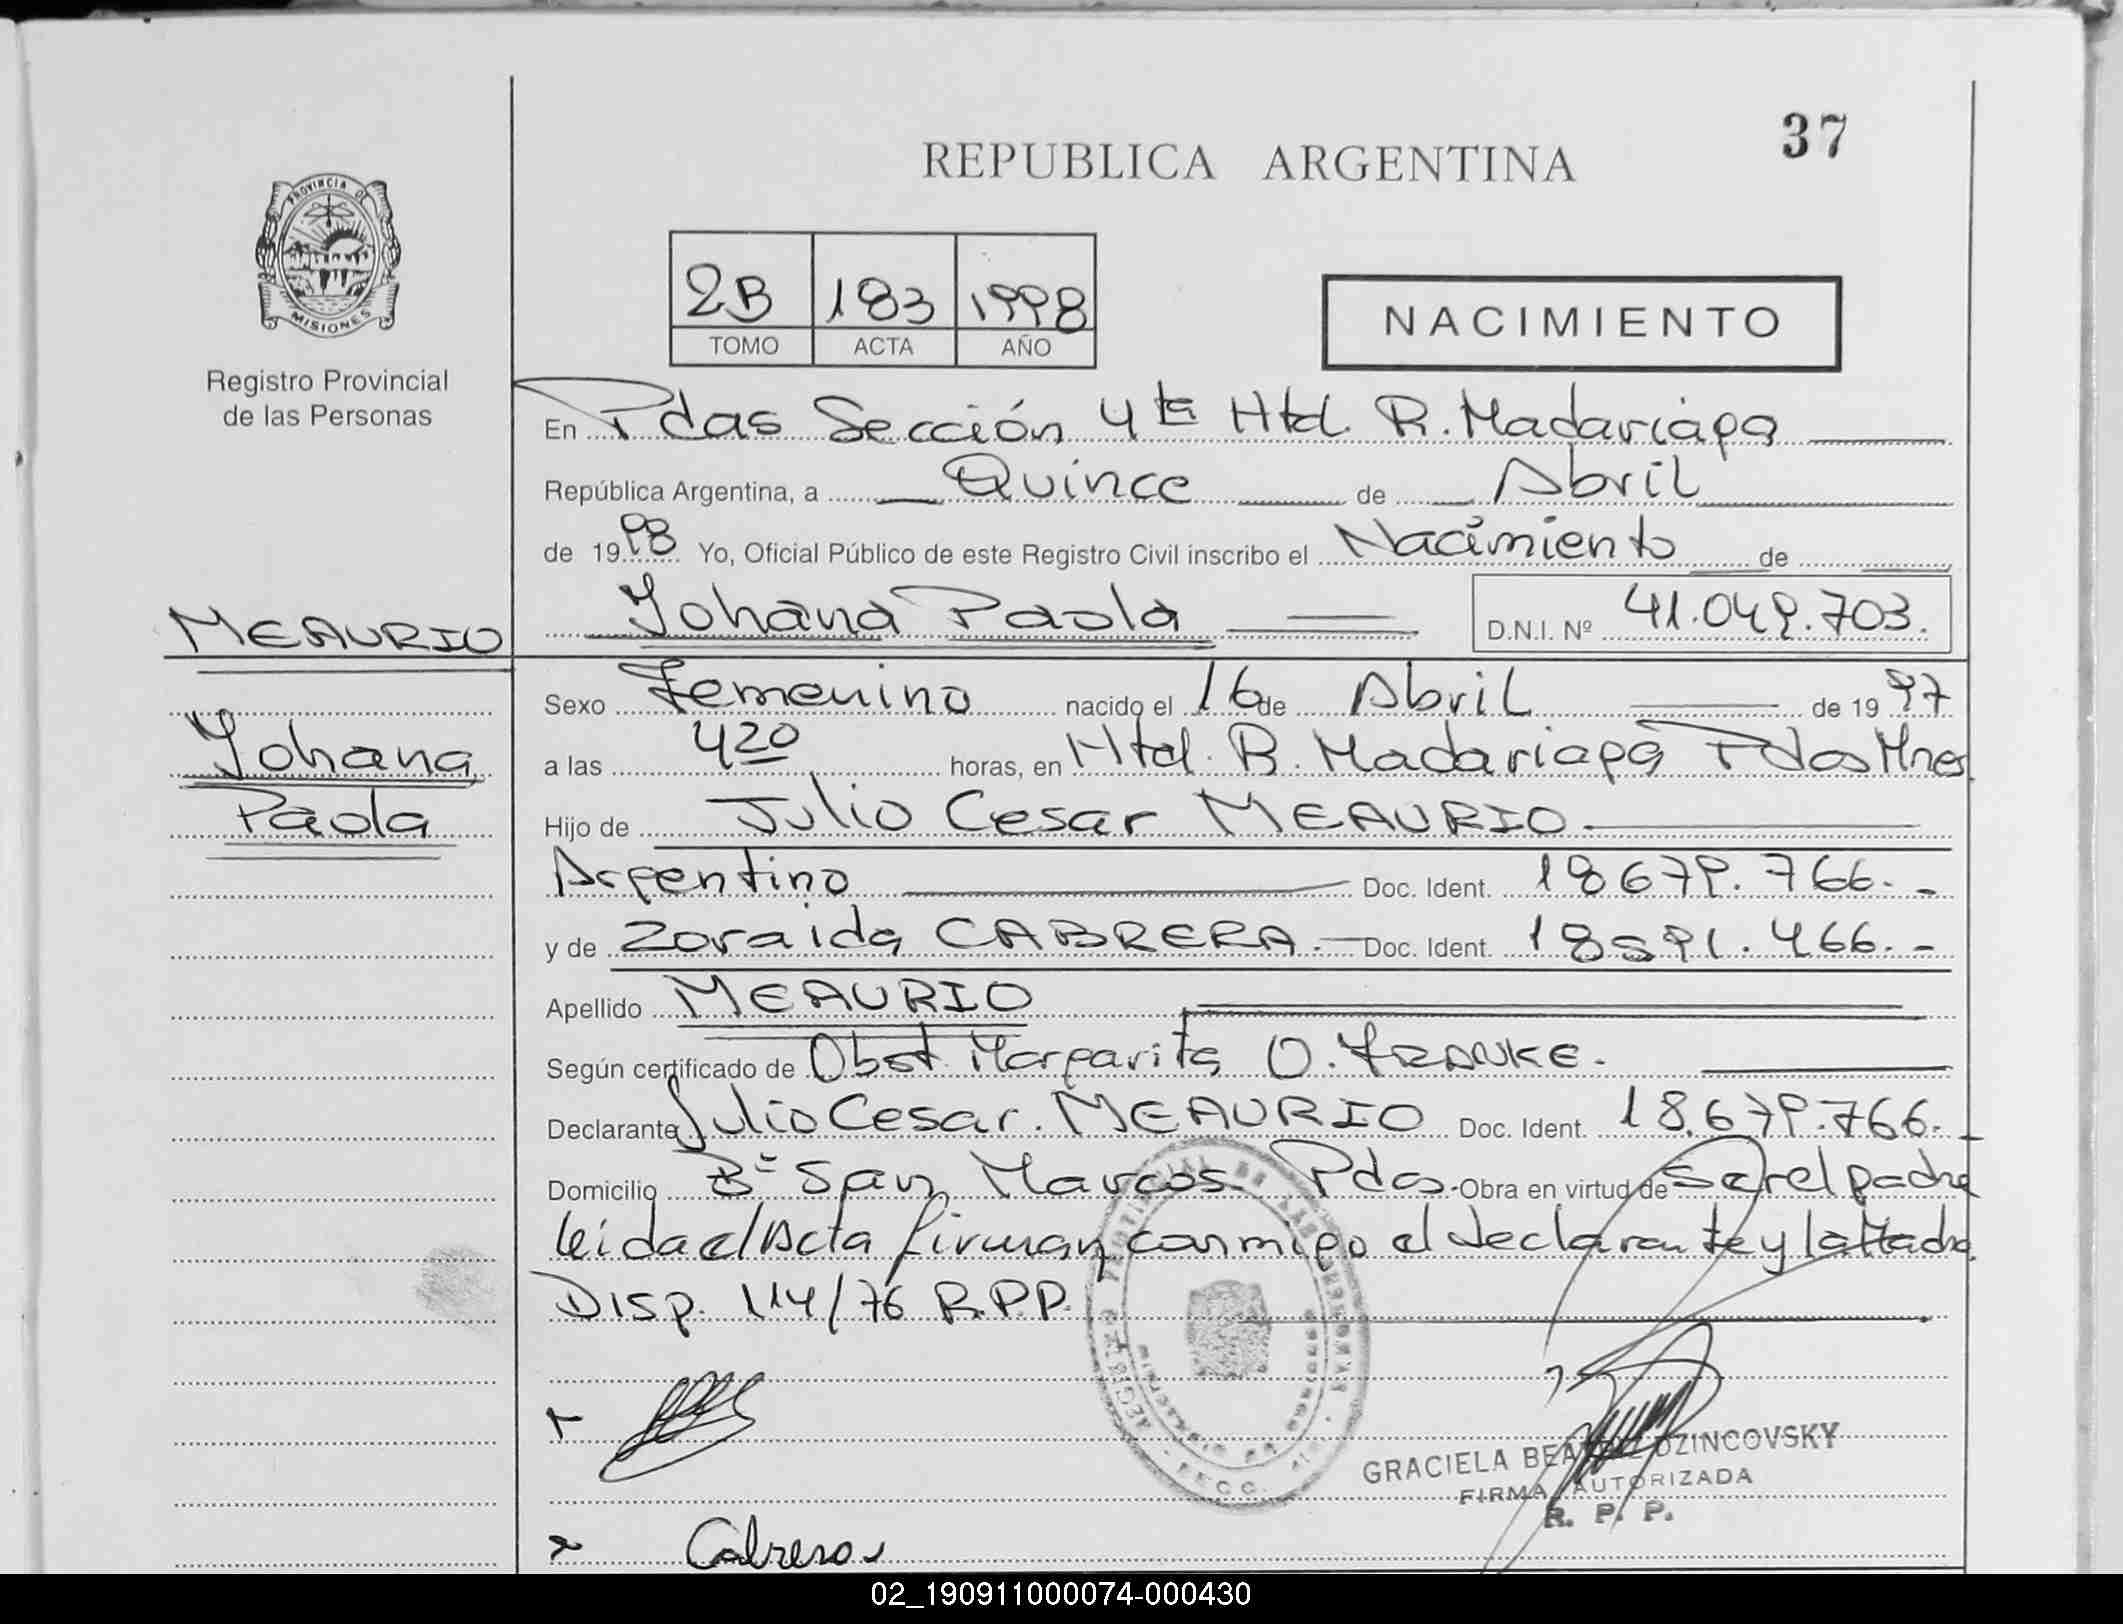 37
REPUBLICA ARGENTINA
PROVINCIA DE
MISIONES
Registro Provincial
de las Personas
2B 183 1998
TOMO ACTA AÑO
NACIMIENTO
En Pdas Sección 4ta Htal. R. Madariaga
República Argentina, a Quince de Abril
de 1998 Yo, Oficial Público de este Registro Civil inscribo el Nacimiento de
MEAURIO Yohana Paola D.N.I. Nº 41.049.703.
Sexo Femenino nacido el 16 de Abril de 1997
Yohana
Paola
a las 4 20 horas, en Htal. R. Madariaga Pdas Mnes
Hijo de Julio Cesar MEAURIO
Argentino Doc. Ident. 18679.766.-
y de Zoraida CABRERA.- Doc. Ident. 18591.466.-
Apellido MEAURIO
Según certificado de Obst. Margarita O. FRANKE.
Declarante Julio Cesar. MEAURIO Doc. Ident. 18.679.766.-
Domicilio Bº San Marcos. Pdas. Obra en virtud de ser el padre
leida el Acta firman conmigo el declarante y la Madre
Disp. 114/76 R.P.P.
GRACIELA BEATRIZ DZINCOVSKY
FIRMA AUTORIZADA
R. P. P.
Cabrera
02_190911000074-000430